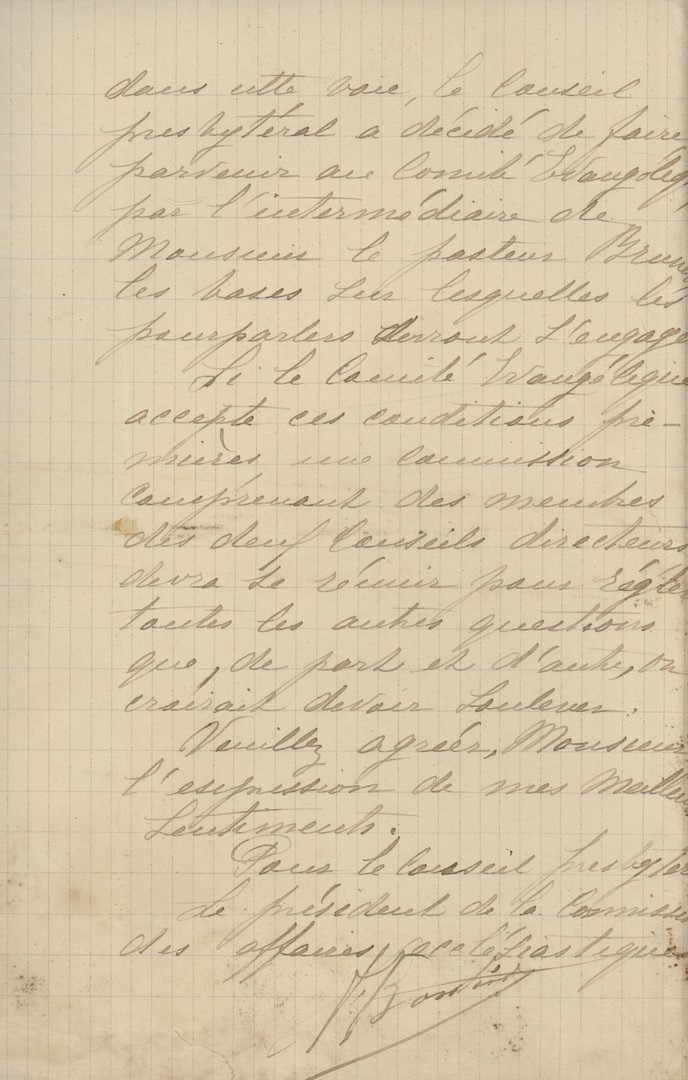 dans cette voie, le Conseil
presbytéral a décidé de faire
parvenir au Comité Evangéliq
par l'intermédiaire de
Monsieur le pasteur Brun
les bases sur lesquelles les
pourparlers devront s'engage
Si le Comité Evangélique
accepte ces conditions pre-
mières une Commission
comprenant des membres
des deux Conseils directeurs
devra se réunir pour régler
toutes les autres questions
que, de part et d'autre, on
croirait devoir soulever.
Veuillez agréer, Monsieur
l'expression de mes meilleur
sentiments.
Pour le Conseil presbytér
Le président de la Commissi
des affaires ecclésiastiques